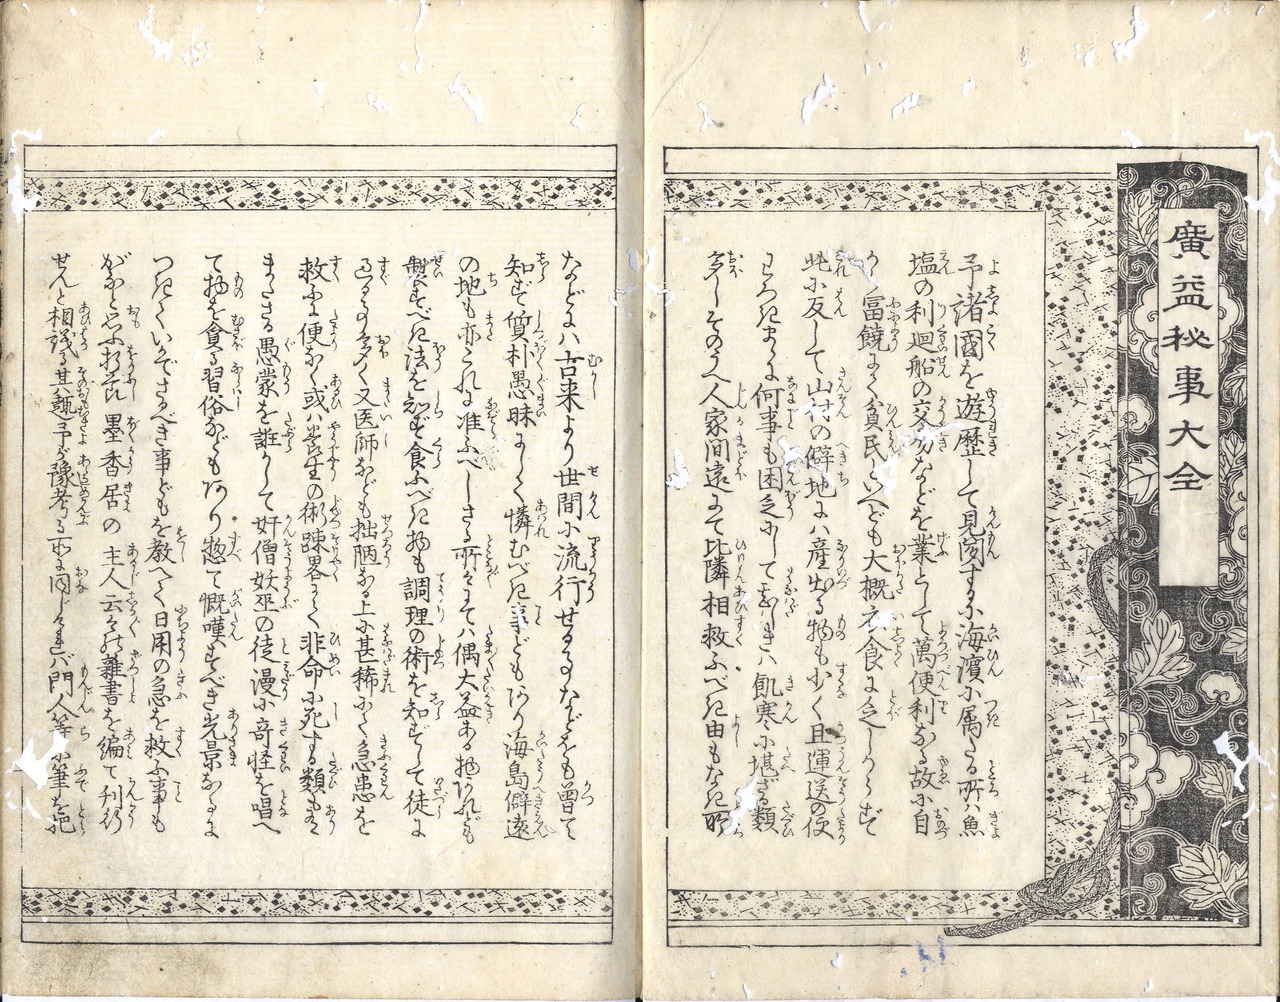 廣益秘事大全
予諸國を遊歴して見聞するに海濱に属たる所ハ魚
塩の利廻船の交易などを業として萬便利なる故に自
から富饒にて貧民といへども大概衣食に乏しからず
此に反して山村の僻地ハ産出る物も少く且運送の便
よろしからず何事も困乏にして甚しきハ飢寒に堪ざる類
多しそのうへ人家間遠にて比隣相救ふべき由もなき所
などにハ古来より世間に流行せる事などをも曽て
知ず質朴愚昧にして憐むべき事どもあり海島僻遠
の地も亦これに准ふべしさる所々にてハ偶大益ある物あれども
製すべき法を知ず食ふべき物も調理の術を知ずして徒に
過る事多く又医師なども拙陋なる上に甚稀にて急患を
救ふに便なく或ハ養生の術踈畧にして非命に死する類も有
またさる愚蒙を誑かして奸僧妖巫の徒漫に奇怪を唱へ
て物を貪る習俗などもあり惣て慨嘆すべき光景なるに
つきていかでさるべき事どもを教へて日用の急を救ふ事も
がなと思ふ折節墨香居の主人云々の雜書を編て刊行
せんと相議る其趣予が豫考る所に同じければ門人等に筆を把